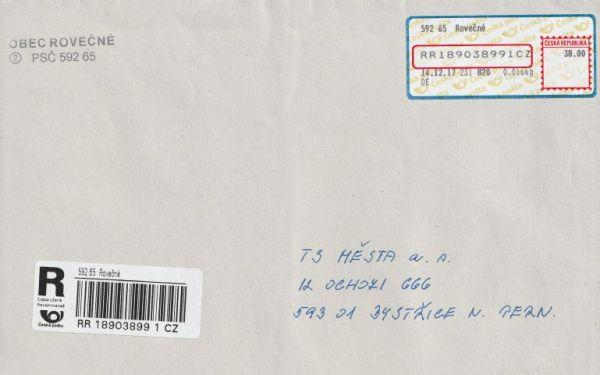 OBEC ROVEČNÉ
② PSČ 592 65
592 65 Rovečné
ČESKÁ REPUBLIKA
RR189038991CZ
38.00
14.12.17 231 820 0.016kg
DE
592 65 Rovečné
R
Doporučeně
Recommandé
Česká pošta
RR 18903899 1 CZ
TS MĚSTA a. s.
K OCHOZI 666
593 01 BYSTŘICE N. PERN.